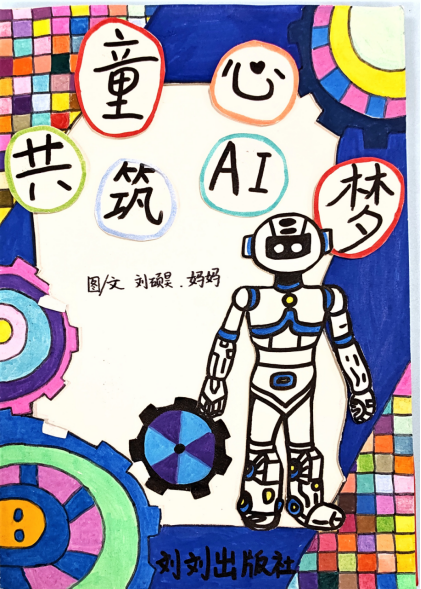 童心
共筑AI梦
图/文 刘硕昊.妈妈
刘刘出版社